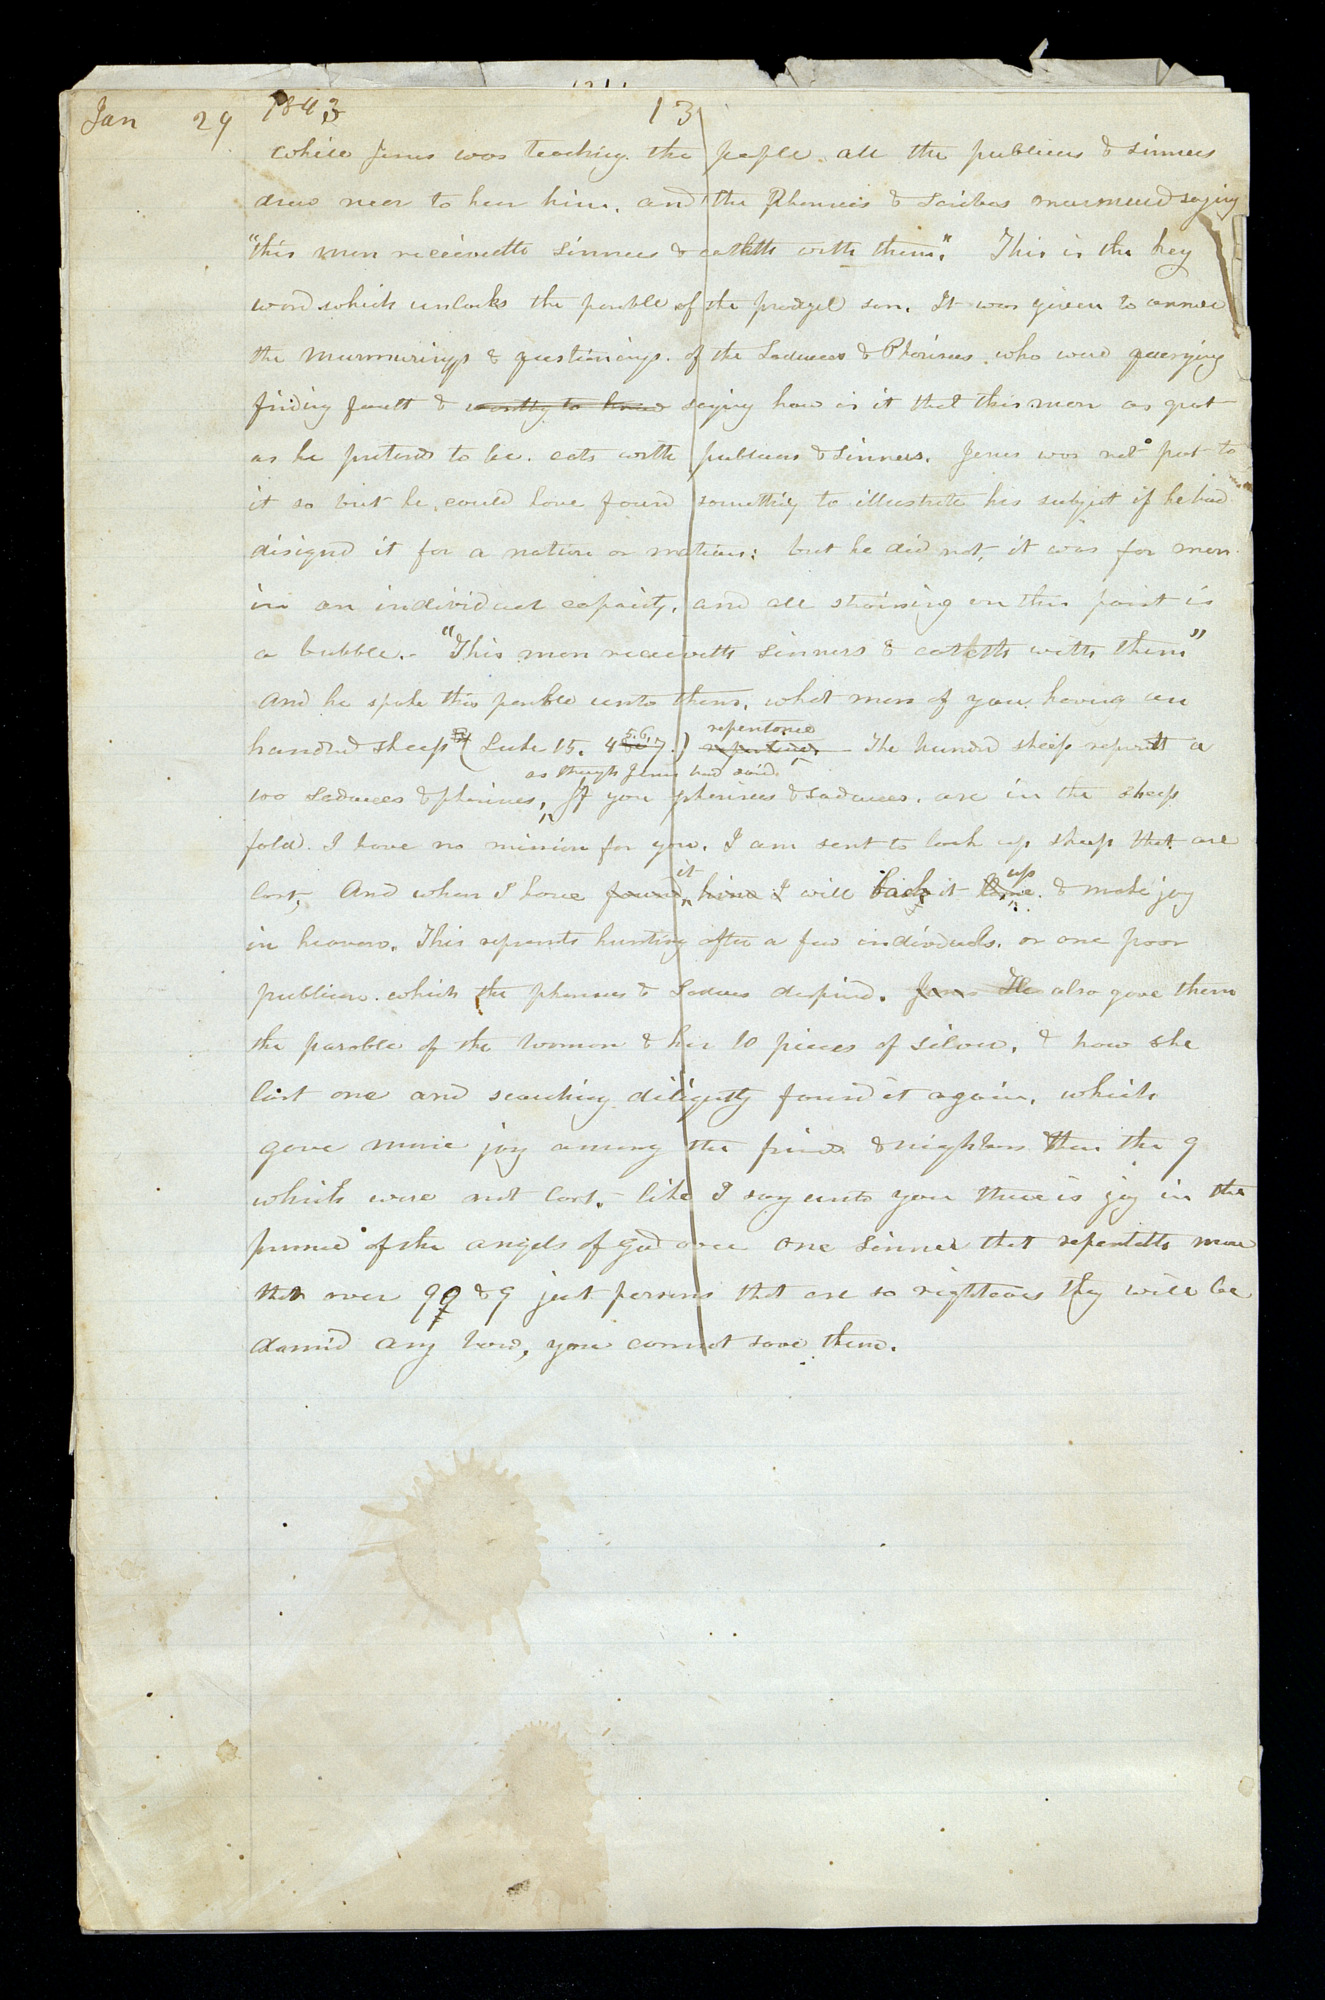 Jan 29 1843 13
While Jesus was teaching the people all the publicans & sinners
drew near to hear him. and the Pharisees & Scribes murmured saying
"this man receiveth sinners & eateth with them." This is the key
word which unlocks the parable of the prodigal son. It was given to answer
the murmurings & questionings. of the Saducees & Pharisees who were querying
finding fault & saying how is it that this man as great
as he pretends to be. eats with publicans & sinners. Jesus was not put to
it so but he could have found something to illustrate his subject if he had
disigned it for a nation or nations: but he did not, it was for men
in an individual capacity, and all straining on this point is
a bubble.- "This man receiveth sinners & eateth with them"
And he spake this parable unto them. what man of you having an
5. 6. repentance
hundred sheep (Luke 15. 4 7.) - The hundred sheep represent a
as though Jesus had said
100 Saducees & pharisees, If you pharisees & saducees. are in the sheep
fold. I have no mission for you. I am sent to look up sheep that are
it up
lost, And when I have found him I will back it & make joy
in heaven. This represents hunting after a few individuals. or one poor
publican. which the pharisees & Saducees despised. Jesus He also gave them
the parable of the woman & her 10 pieces of silver. & how she
lost one and searching diligently found it again. which
gave more joy among the friends & neighbors than the 9
which were not lost. - like I say unto you there is joy in the
presence of the angels of God over one sinner that repenteth more
than over 90 & 9 just persons that are so righteous they will be
damn'd any how, you cannot save them.